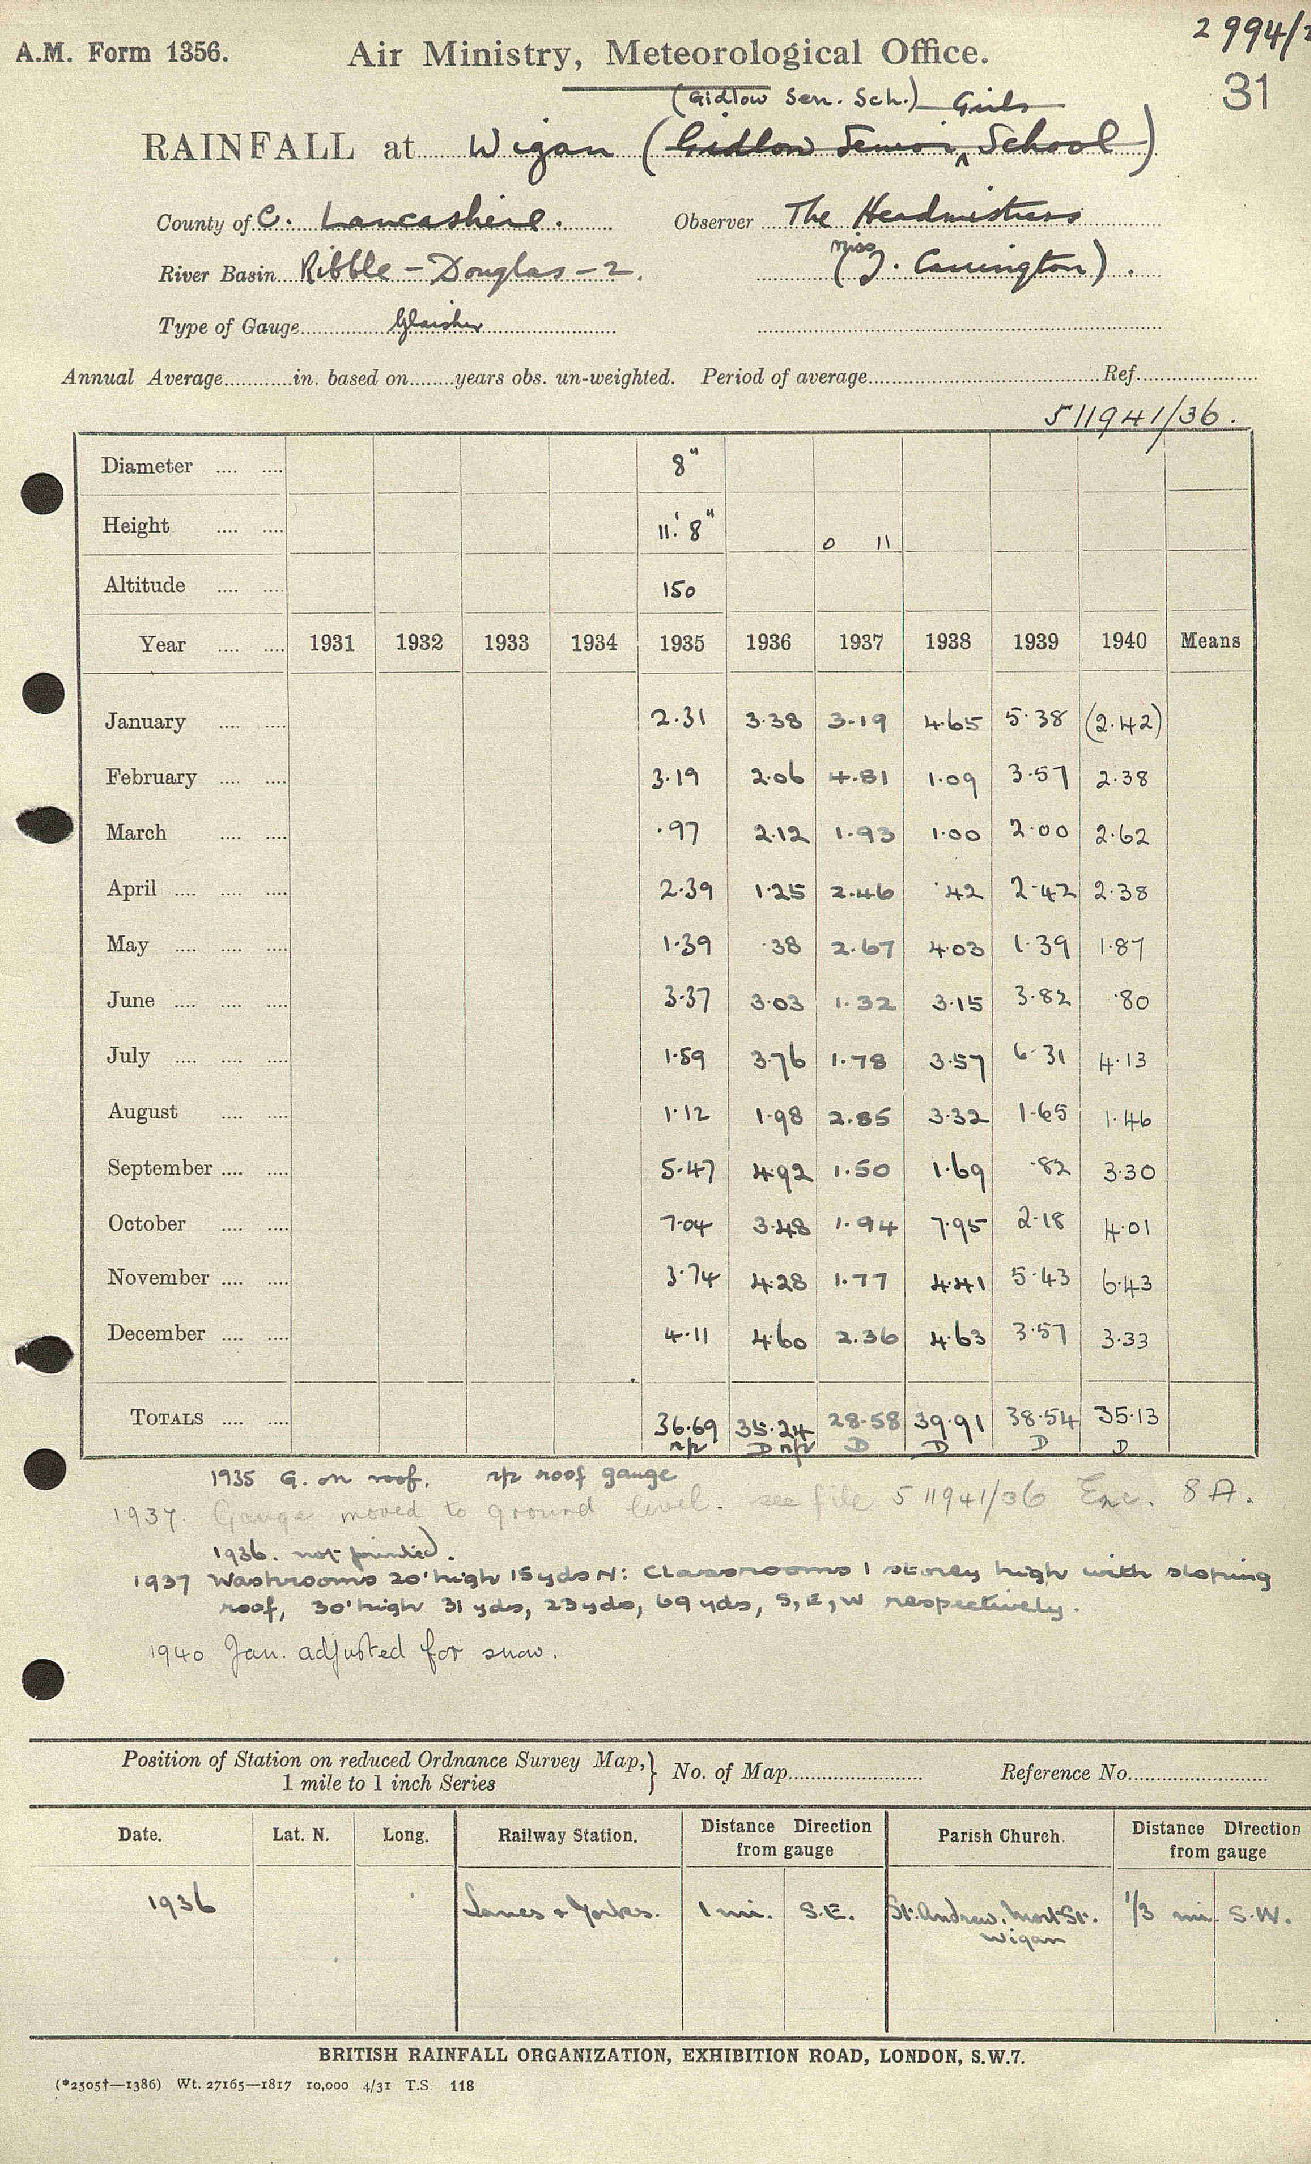 2994/2
A.M. Form 1356. Air Ministry, Meteorological Office.
31
(Gidlow Sen. Sch.) Girls
RAINFALL at Wigan (Gidlow Senior School)
County of C. Lancashire. Observer The Headmistress
River Basin Ribble - Douglas - 2. (Miss J. Carrington).
Type of Gauge Glaisher
Annual Average in. based on years obs. un-weighted. Period of average Ref.
511941/36.
Diameter 8"
Height 11' 8" 0 11
Altitude 150
Year 1931 1932 1933 1934 1935 1936 1937 1938 1939 1940 Means
January 2.31 3.38 3.19 4.65 5.38 (2.42)
February 3.19 2.06 4.81 1.09 3.57 2.38
March .97 2.12 1.93 1.00 2.00 2.62
April 2.39 1.25 2.46 .42 2.42 2.38
May 1.39 .38 2.67 4.03 1.39 1.87
June 3.37 3.03 1.32 3.15 3.82 .80
July 1.59 3.76 1.78 3.57 6.31 4.13
August 1.12 1.98 2.85 3.32 1.65 1.46
September 5.47 4.92 1.50 1.69 .82 3.30
October 7.04 3.48 1.94 7.95 2.18 4.01
November 3.74 4.28 1.77 4.41 5.43 6.43
December 4.11 4.60 2.36 4.63 3.57 3.33
TOTALS 36.69 35.24 28.58 39.91 38.54 35.13
r/p D r/p D D D D
1935 G. on roof. r/p roof gauge
1937. Gauge moved to ground level. see file 511941/36 Enc. 8A.
1936. not printed).
1937 Washrooms 20' high 15 yds N: Classrooms 1 storey high with sloping
roof, 30' high 31 yds, 23 yds, 69 yds, S, E, W respectively.
1940 Jan. adjusted for snow.
Position of Station on reduced Ordnance Survey Map, 1 mile to 1 inch Series } No. of Map Reference No.
Date. Lat. N. Long. Railway Station. Distance Direction from gauge Parish Church. Distance Direction from gauge
1936 Lancs & Yorks. 1 mi. S.E. St. Andrew. Mort St. Wigan 1/3 mi. S.W.
BRITISH RAINFALL ORGANIZATION, EXHIBITION ROAD, LONDON, S.W.7.
(*2505†—1386) Wt. 27165—1817 10,000 4/31 T.S 118